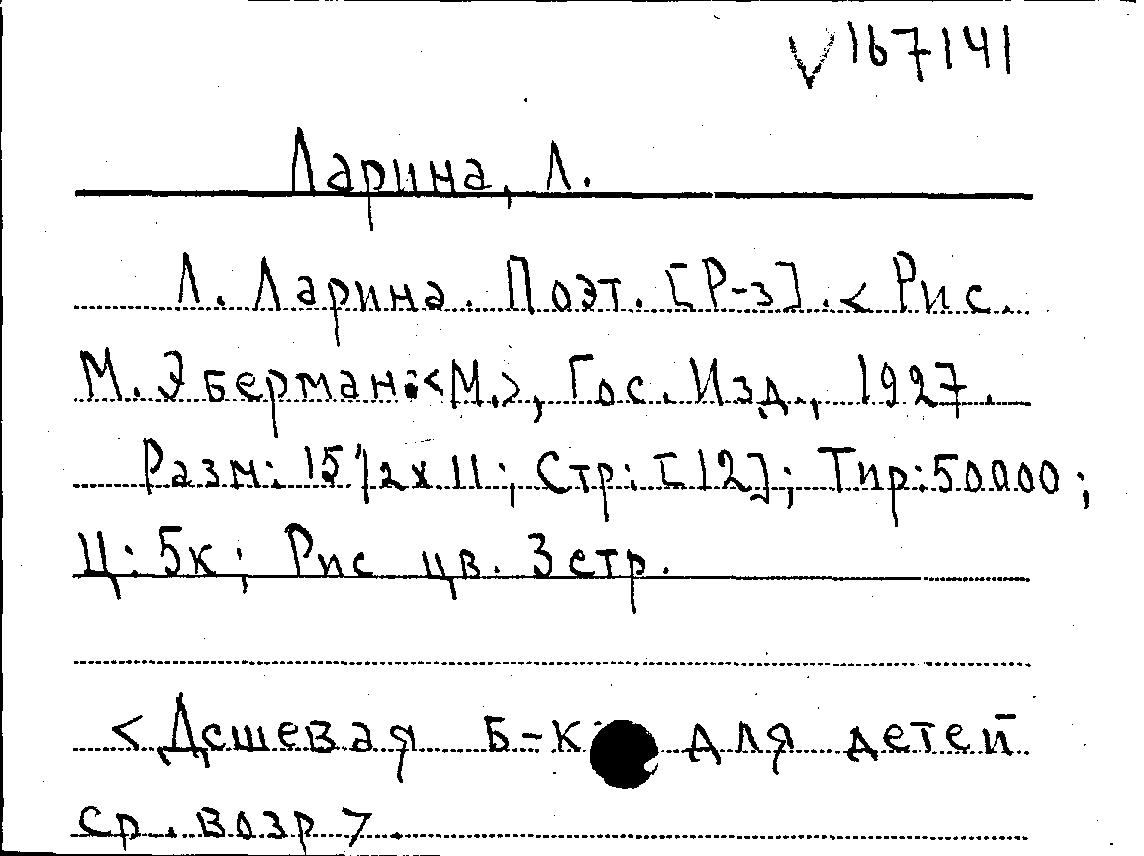 V167141
Ларина, Л.
Л. Ларина. Поэт. [Р-з]. < Рис.
М. Эберман: <М.>, Гос. Изд., 1927.
Разм: 15 1/2 х 11; Стр: [12]; Тир: 50000;
Ц: 5к; Рис цв. 3 стр.
<Дешевая Б-к для детей
ср. возр>.